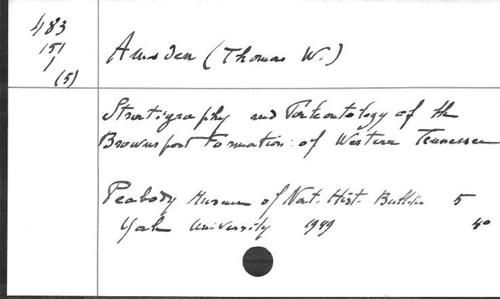 483
151
1
(5)
Amsden (Thomas W.)
Stratigraphy and Paleontology of the
Brownsport Formation: of Western Tennessee
Peabody Museum of Nat. Hist. Bulletin 5
Yale University 1949
40